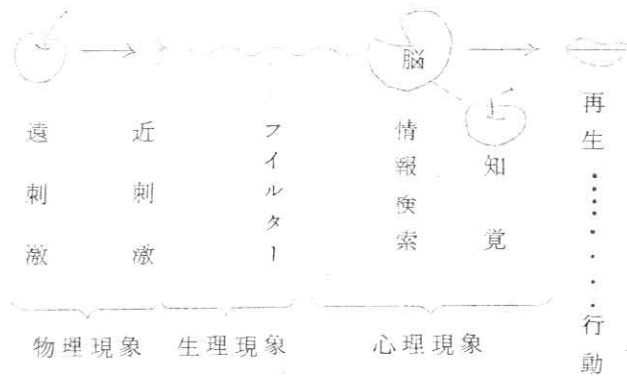 脳
遠刺激
近刺激
フイルター
情報検索
知覚
再生……・・・・行動
物理現象
生理現象
心理現象